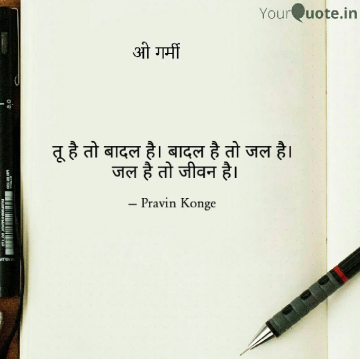 YourQuote.in
ओ गर्मी
तू है तो बादल है। बादल है तो जल है।
जल है तो जीवन है।
— Pravin Konge